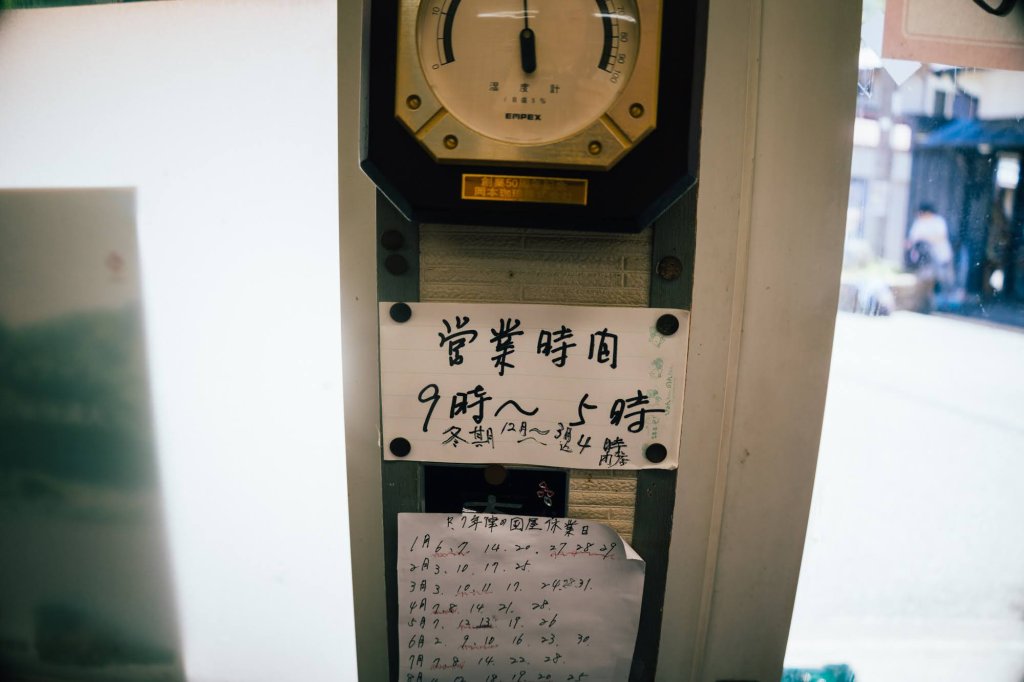 10
0
70
80
90
100
温度計
EMPEX
創業50
岡本珈琲
営業時間
9時〜5時
冬期 12月〜3月迄 4時
R.7年 休業日
1月 6. 7. 14. 20. 27. 28. 29
2月 3. 10. 17. 25
3月 3. 10. 11. 17. 24. 25. 31.
4月 7. 8. 14. 21. 28.
5月 7. 12 13. 19. 26
6月 2. 9. 10 16. 23. 30
7月 7. 8. 14. 22. 28.